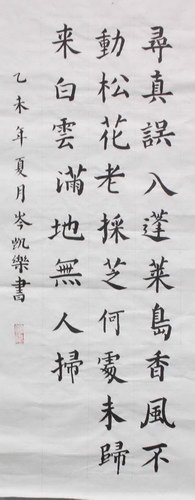 尋真誤入蓬萊島香風不
動松花老採芝何處未歸
来白雲滿地無人掃
乙未年夏月岑凱樂書